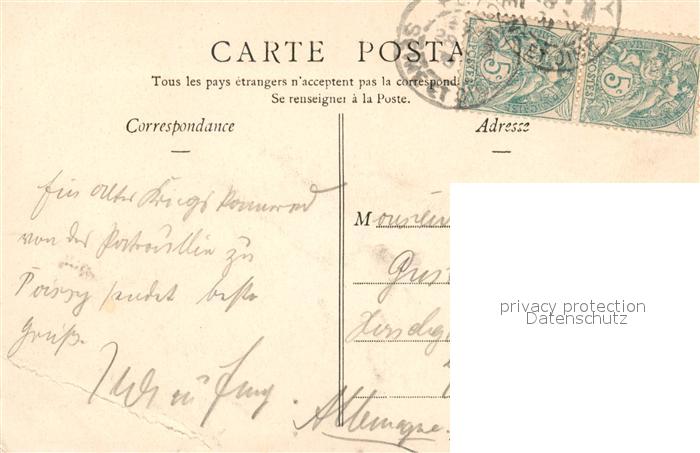 CARTE POSTA
Tous les pays étrangers n'acceptent pas la correspond
Se renseigner à la Poste.
Correspondance
Adresse
5c 5c
POSTES
Ein alter Kriegskamerad
von der Patrouille zu
Poissy sendet beste
Grüße.
Monsieur
Gust
Allemagne.
privacy protection
Datenschutz